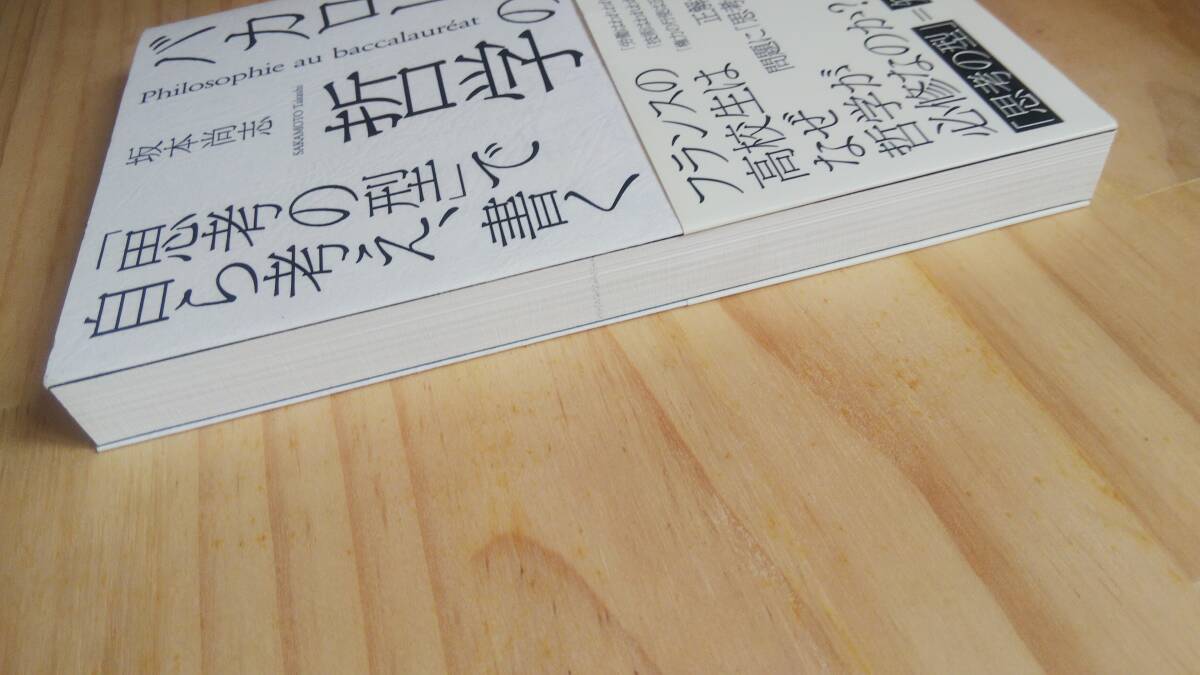 バカロ
Philosophie au baccalauréat
哲学の
坂本尚志
SAKAMOTO Takashi
「思考の型」で
自ら考え、書く
フランスの
高校生は
なぜ
哲学が
必修なのか?
「思考の型」=
問題に「思考
正解